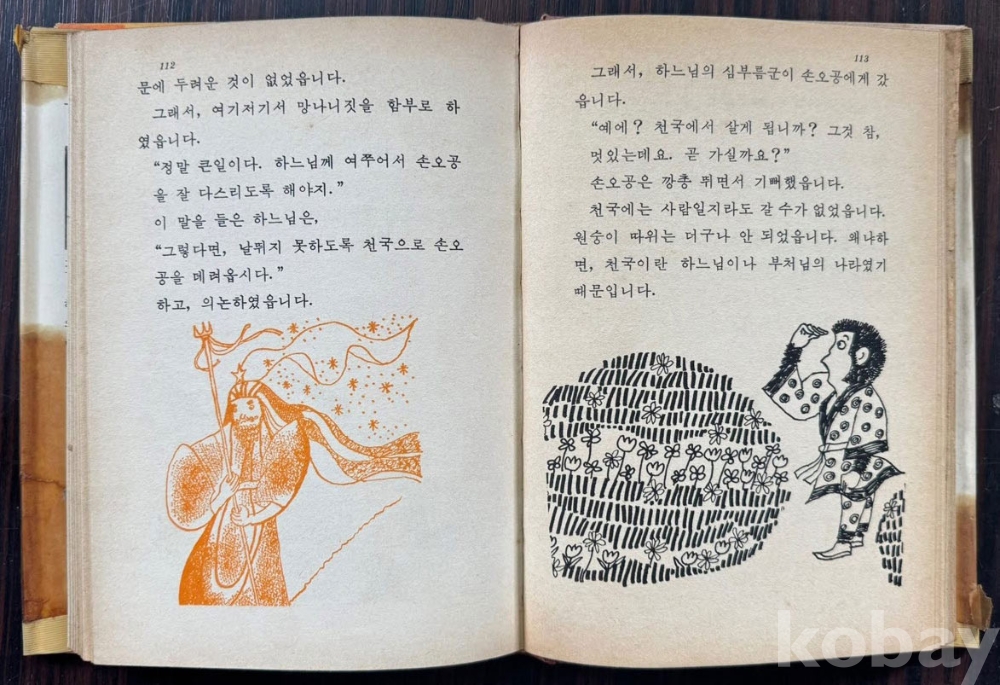 112
문에 두려운 것이 없었읍니다.
그래서, 여기저기서 망나니짓을 함부로 하
였읍니다.
“정말 큰일이다. 하느님께 여쭈어서 손오공
을 잘 다스리도록 해야지.”
이 말을 들은 하느님은,
“그렇다면, 날뛰지 못하도록 천국으로 손오
공을 데려옵시다.”
하고, 의논하였읍니다.
113
그래서, 하느님의 심부름군이 손오공에게 갔
읍니다.
“예에? 천국에서 살게 됩니까? 그것 참,
멋있는데요. 곧 가실까요?”
손오공은 깡총 뛰면서 기뻐했읍니다.
천국에는 사람일지라도 갈 수가 없었읍니다.
원숭이 따위는 더구나 안 되었읍니다. 왜냐하
면, 천국이란 하느님이나 부처님의 나라였기
때문입니다.
kobay